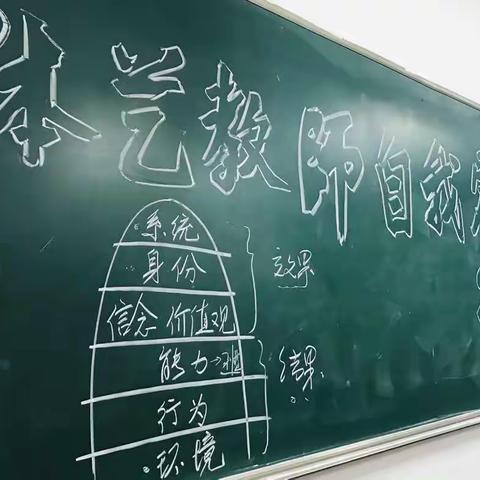 本艺教师自我
系统
身份
效果
信念 价值观
能力→
结果
行为
环境